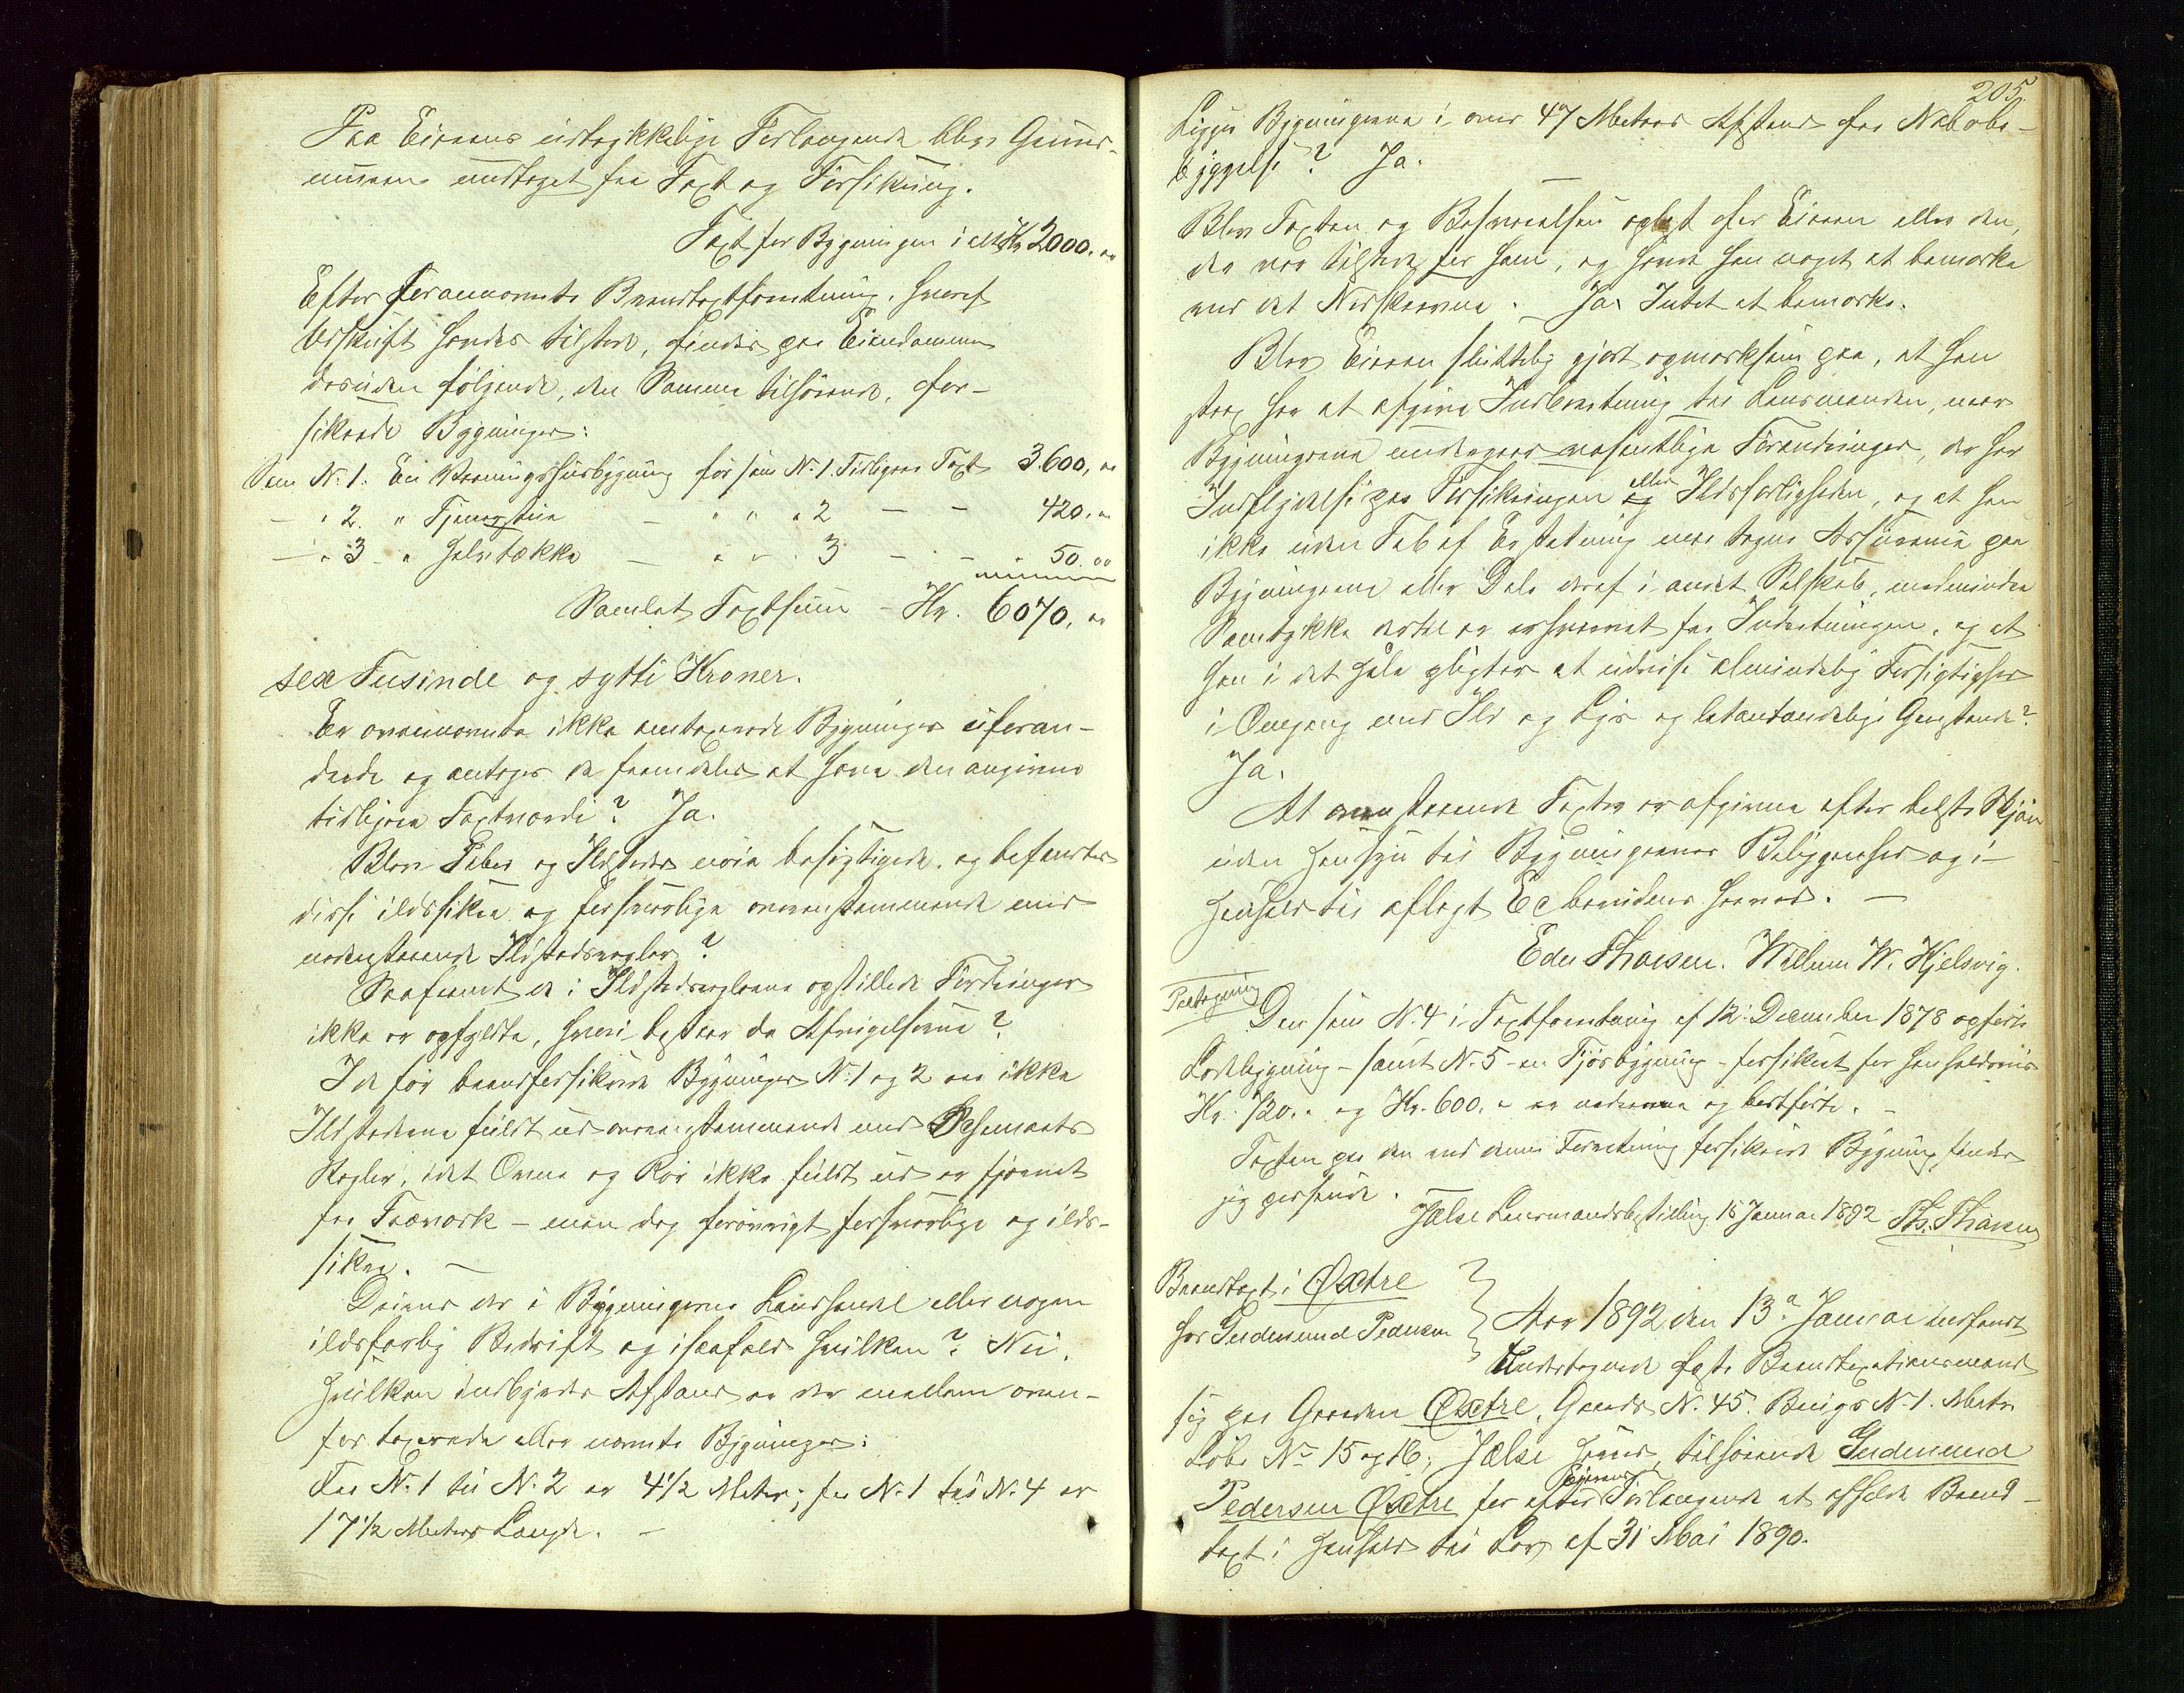 Paa Eierens udtrykkelige Forlangende blev Grund-
muren undtaget fra Taxt og Forsikring.
Taxt for Bygningen i alt Kr 2000. "
Efter foranævnte Brandtaxtforretning, hvoraf
Udskrift havdes tilstede, findes paa Eiendommen
desuden følgende, den Samme tilhørende, for-
sikrede Bygninger:
Som N. 1. En Vaaningshusbygning før som N. 1. Tidligere Taxt 3.600. "
— " 2. " Fjenerstue — " " " 2 — — 420. "
— " 3 " Halvtække — " " " 3 — — 50. 00
Samlet Taxtsum - Kr. 6070. "
sex Tusinde og sytti Kroner.
Er ovennævnte ikke omtaxerede Bygninger uforan-
drede og antages de fremdeles at have den angivne
tidligere Taxtværdi? Ja.
Blev Piber og Ildsteder nøie besigtigede og befandtes
disse ildssikre og forsvarlige overensstemmende med
nedenstaaende Ildstedsregler?
Saafremt de i Ildstedsreglerne opstillede Fordringer
ikke er opfyldte, hvori bestaar da Afvigelserne?
I de før brandforsikrede Bygninger N. 1 og 2 er ikke
Ildstederne fuldt ud overensstemmende med
Regler, idet Ovne og Rør ikke fuldt ud er fjernet
fra Træværk – men dog forøvrigt forsvarlige og ilds-
sikre. —
Drives der i Bygningerne Landhandel eller nogen
ildsfarlig Bedrift og isaafald hvilken? Nei.
Hvilken indbyrdes Afstand er der mellem oven-
for taxerede eller nævnte Bygninger:
Fra N. 1 til N. 2 er 4 1/2 Meter; fra N. 1 til N. 4 er
17 1/2 Meters Længde. —
205.
Ligger Bygningerne i over 47 Meters Afstand fra Nabobe-
byggelse? Ja. —
Blev Taxten og Beskrivelsen oplæst for Eieren eller den,
der var tilstede for ham, og havde han noget at bemærke
ved det Nedskrevne. Ja. Intet at bemærke.
Blev Eieren sluttelig gjort opmærksom paa, at han
strax har at afgive Indberetning til Lensmanden, naar
Bygningerne undergaar væsentlige Forandringer, der har
Indflydelse paa Forsikringen eller Ildsfarligheden, og at han
ikke uden Tab af Erstatning maa tegne Assurance paa
Bygningerne eller Dele deraf i andet Selskab, medmindre
Samtykke dertil er erhvervet fra Indretningen, og at
han i det Hele pligter at udvise almindelig Forsigtighed
i Omgang med Ild og Lys og letantændelige Genstande?
Ja.
At ovenstaaende Taxter er afgivne efter bedste Skjøn
uden Hensyn til Bygningernes Beliggenhed og i
Henhold til aflagt Ed bevidnes herved. —
Eder Thorsen. Willum W. Hjelsvig.
Paategning
Den som N. 4 i Taxtforretning af 12. December 1878 opførte
Ladebygning – samt N. 5 – en Fjøsbygning – forsikret for henholdsvis
Kr. 720. " og Kr. 600. " er nedrevne og bortførte. —
Taxten paa den ved denne Forretning forsikrede Bygning finder
jig passende.
Jælse Lensmandsbestilling 15 Januar 1892 Th. Thorsen
Brandtaxt i Øxtre
for Gudmund Pedersen
Aar 1892 den 13de Januar indfandt
Undertegnede faste Brandtaxationsmænd
sig paa Gaarden Øxtre, Gaards N. 45. Brugs N. 1. Matr.
Løbe No 15 og 16, Jælse Herred, tilhørende Gudmund
Pedersen Øxtre for efter Eierens Forlangende at afholde Brand-
taxt i Henhold til Lov af 31 Mai 1890.